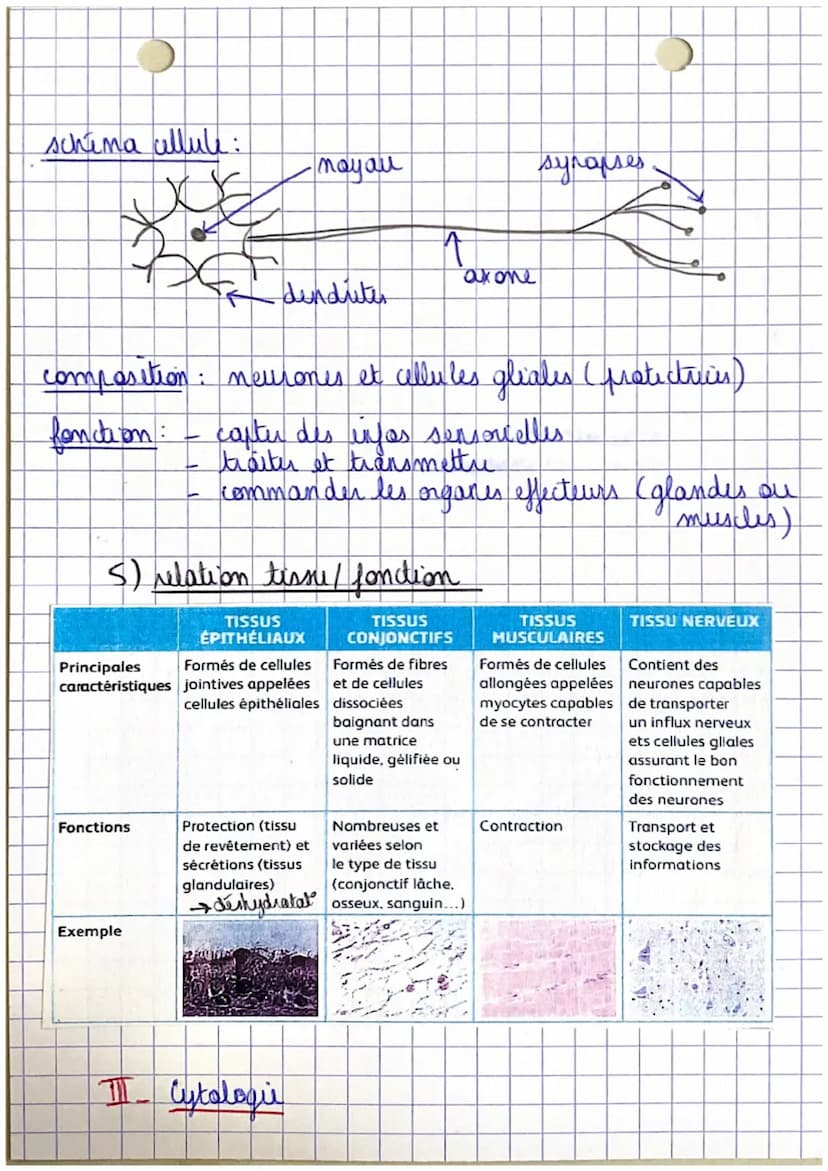 schéma cellule :
noyau
synapses
axone
dendrites
composition : neurones et cellules gliales (protectrices)
fonction : - capter des infos sensorielles
- traiter et transmettre
- commander les organes effecteurs (glandes ou
muscles)
5) relation tissu / fonction
TISSUS
ÉPITHÉLIAUX
TISSUS
CONJONCTIFS
TISSUS
MUSCULAIRES
TISSU NERVEUX
Principales
caractéristiques
Formés de cellules
jointives appelées
cellules épithéliales
Formés de fibres
et de cellules
dissociées
baignant dans
une matrice
liquide, gélifiée ou
solide
Formés de cellules
allongées appelées
myocytes capables
de se contracter
Contient des
neurones capables
de transporter
un influx nerveux
ets cellules gliales
assurant le bon
fonctionnement
des neurones
Fonctions
Protection (tissu
de revêtement) et
sécrétions (tissus
glandulaires)
→ déshydratat°
Nombreuses et
variées selon
le type de tissu
(conjonctif lâche,
osseux, sanguin...)
Contraction
Transport et
stockage des
informations
Exemple
III - Cytologie